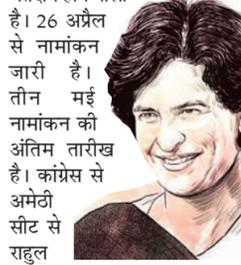 है। 26 अप्रैल
से नामांकन
जारी है।
तीन मई
नामांकन की
अंतिम तारीख
है। कांग्रेस से
अमेठी
सीट से
राहुल